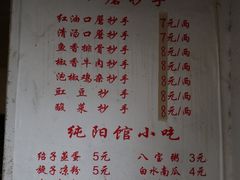 口蘑抄手
红油口蘑抄手 7元/两
清汤口蘑抄手 7元/两
鱼香排骨抄手 8元/两
椒香牛肉抄手 8元/两
泡椒鸡杂抄手 8元/两
豇豆抄手 8元/两
酸菜抄手 8元/两
纯阳馆小吃
给子蒸蛋 5元 八宝粥 3元
旋子凉粉 5元 白水南瓜 4元